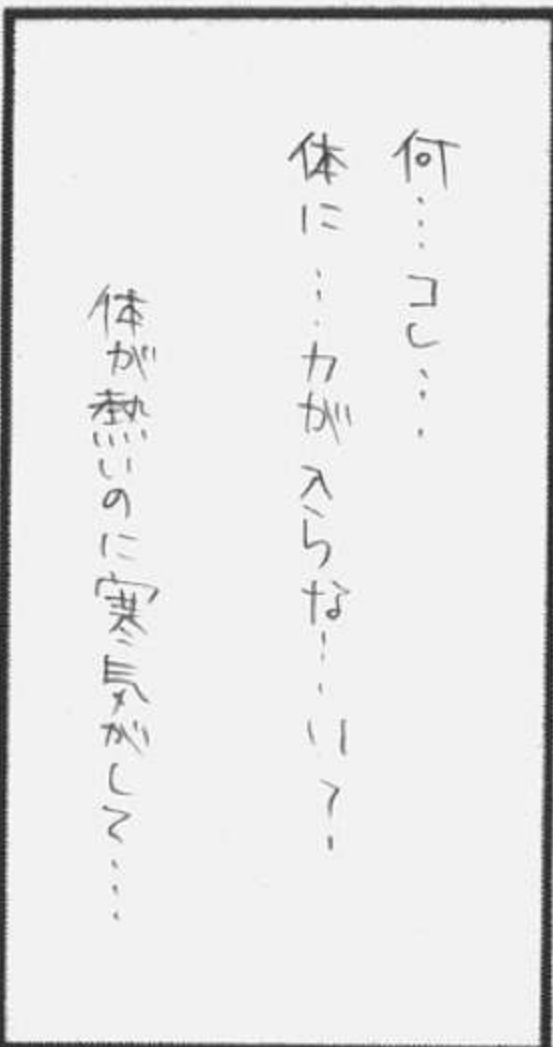 何…コレ…
体に…力が入らな…い?
体が熱いのに寒気がして…